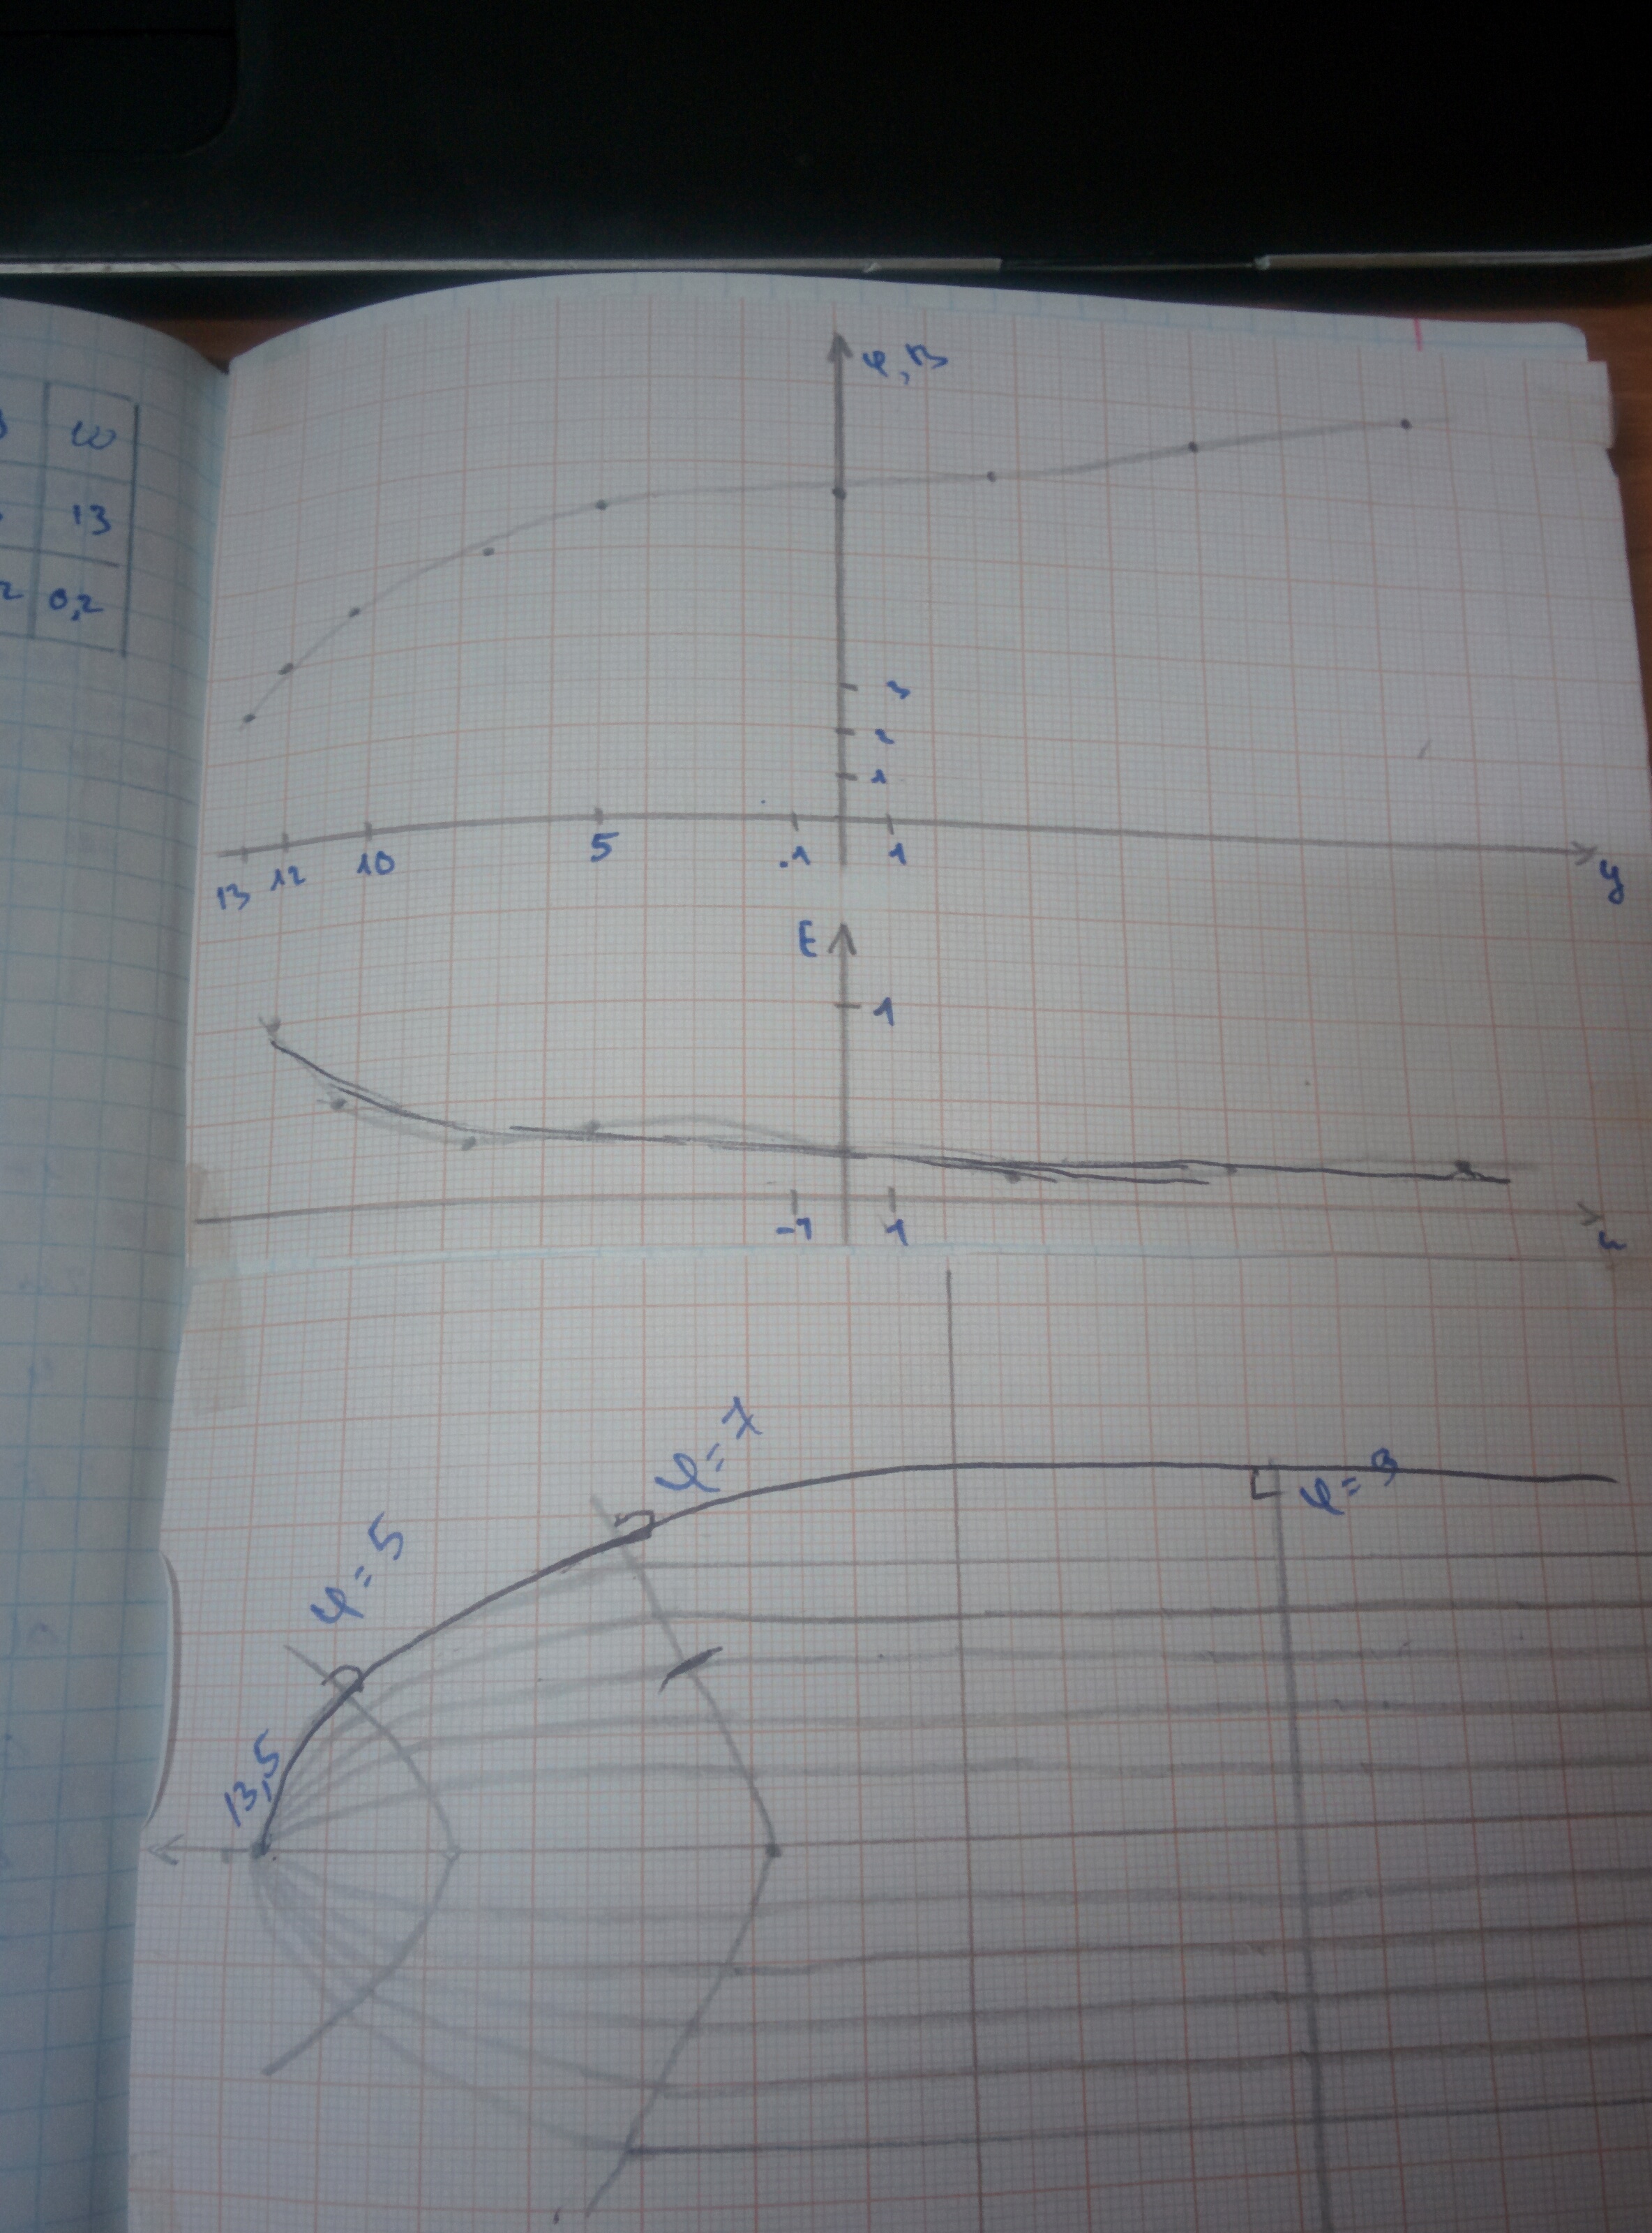 10
13
2 0,2
φ, В
3
2
1
13 12 10 5 -1 1 y
E
1
-1 1
φ = 7
φ = 9
φ = 5
13,5